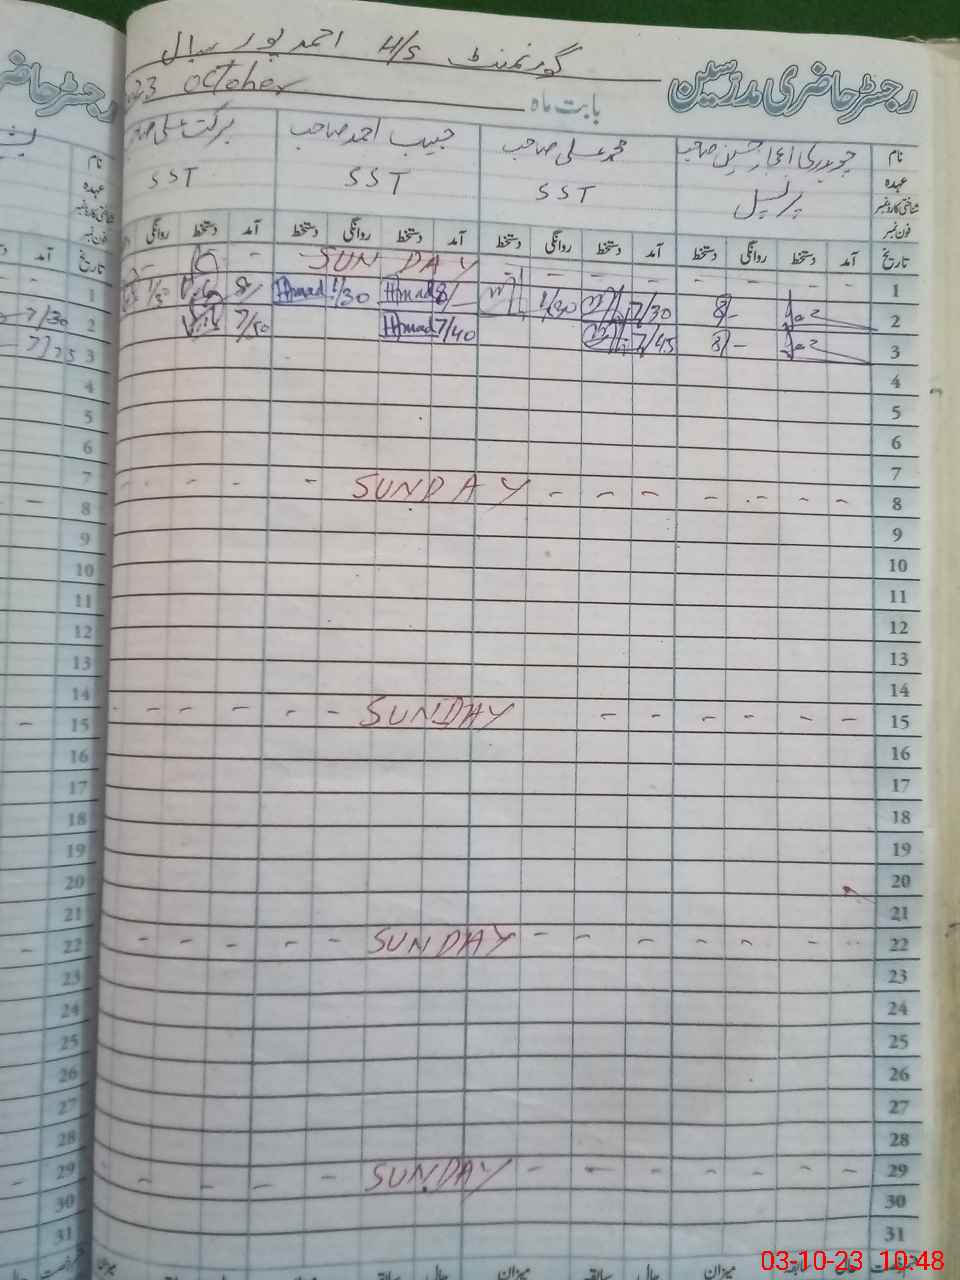 گورنمنٹ H/S احمد پور سیال
رجسٹر حاضری مدرسین
بابت ماہ
23 october
نام چوہدری اعجاز حسین صاحب محمد علی صاحب حبیب احمد صاحب برکت علی
عہدہ پرنسپل SST SST SST
شناختی کارڈ نمبر
فون نمبر
تاریخ آمد دستخط روانگی دستخط آمد دستخط روانگی دستخط آمد دستخط روانگی دستخط آمد دستخط روانگی
1 SUNDAY
2 8/- 7/30 1/30 8/ Ahmad 1/30 Ahmad 8/
3 8/- 7/45 7/40 Ahmad 7/50
4
5
6
7
8 SUNDAY
9
10
11
12
13
14
15 SUNDAY
16
17
18
19
20
21
22 SUNDAY
23
24
25
26
27
28
29 SUNDAY
30
31
میزان سابقہ حال میزان
رجسٹر حاضر
نام
عہدہ
شناختی کارڈ نمبر
فون نمبر
تاریخ آمد
1
2 7/30
3 7/25
4
5
6
7
8
9
10
11
12
13
14
15
16
17
18
19
20
21
22
23
24
25
26
27
28
29
30
31
03-10-23 10:48